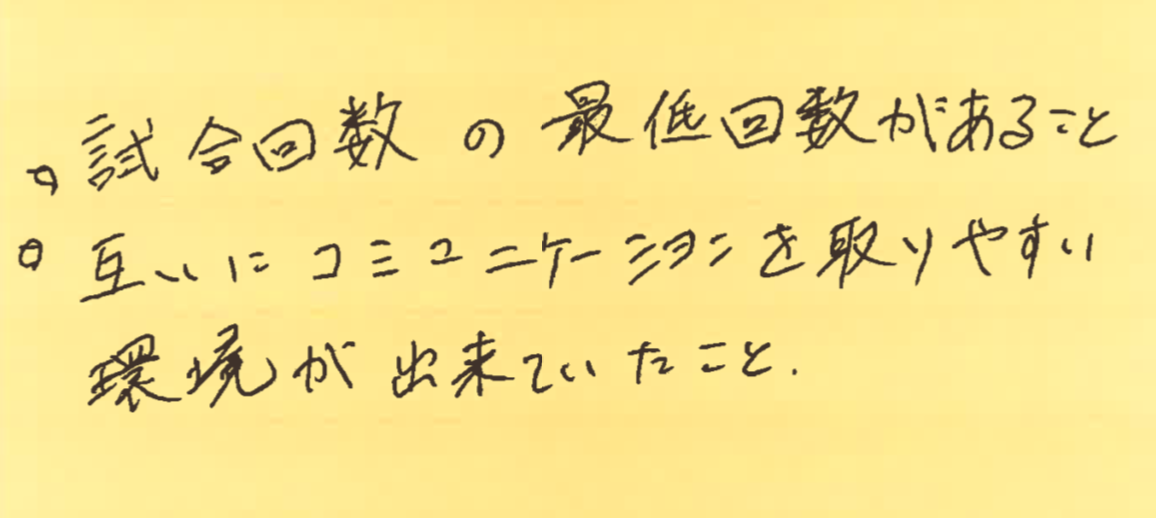 。試合回数の最低回数があること
。互いにコミュニケーションを取りやすい
環境が出来ていたこと.